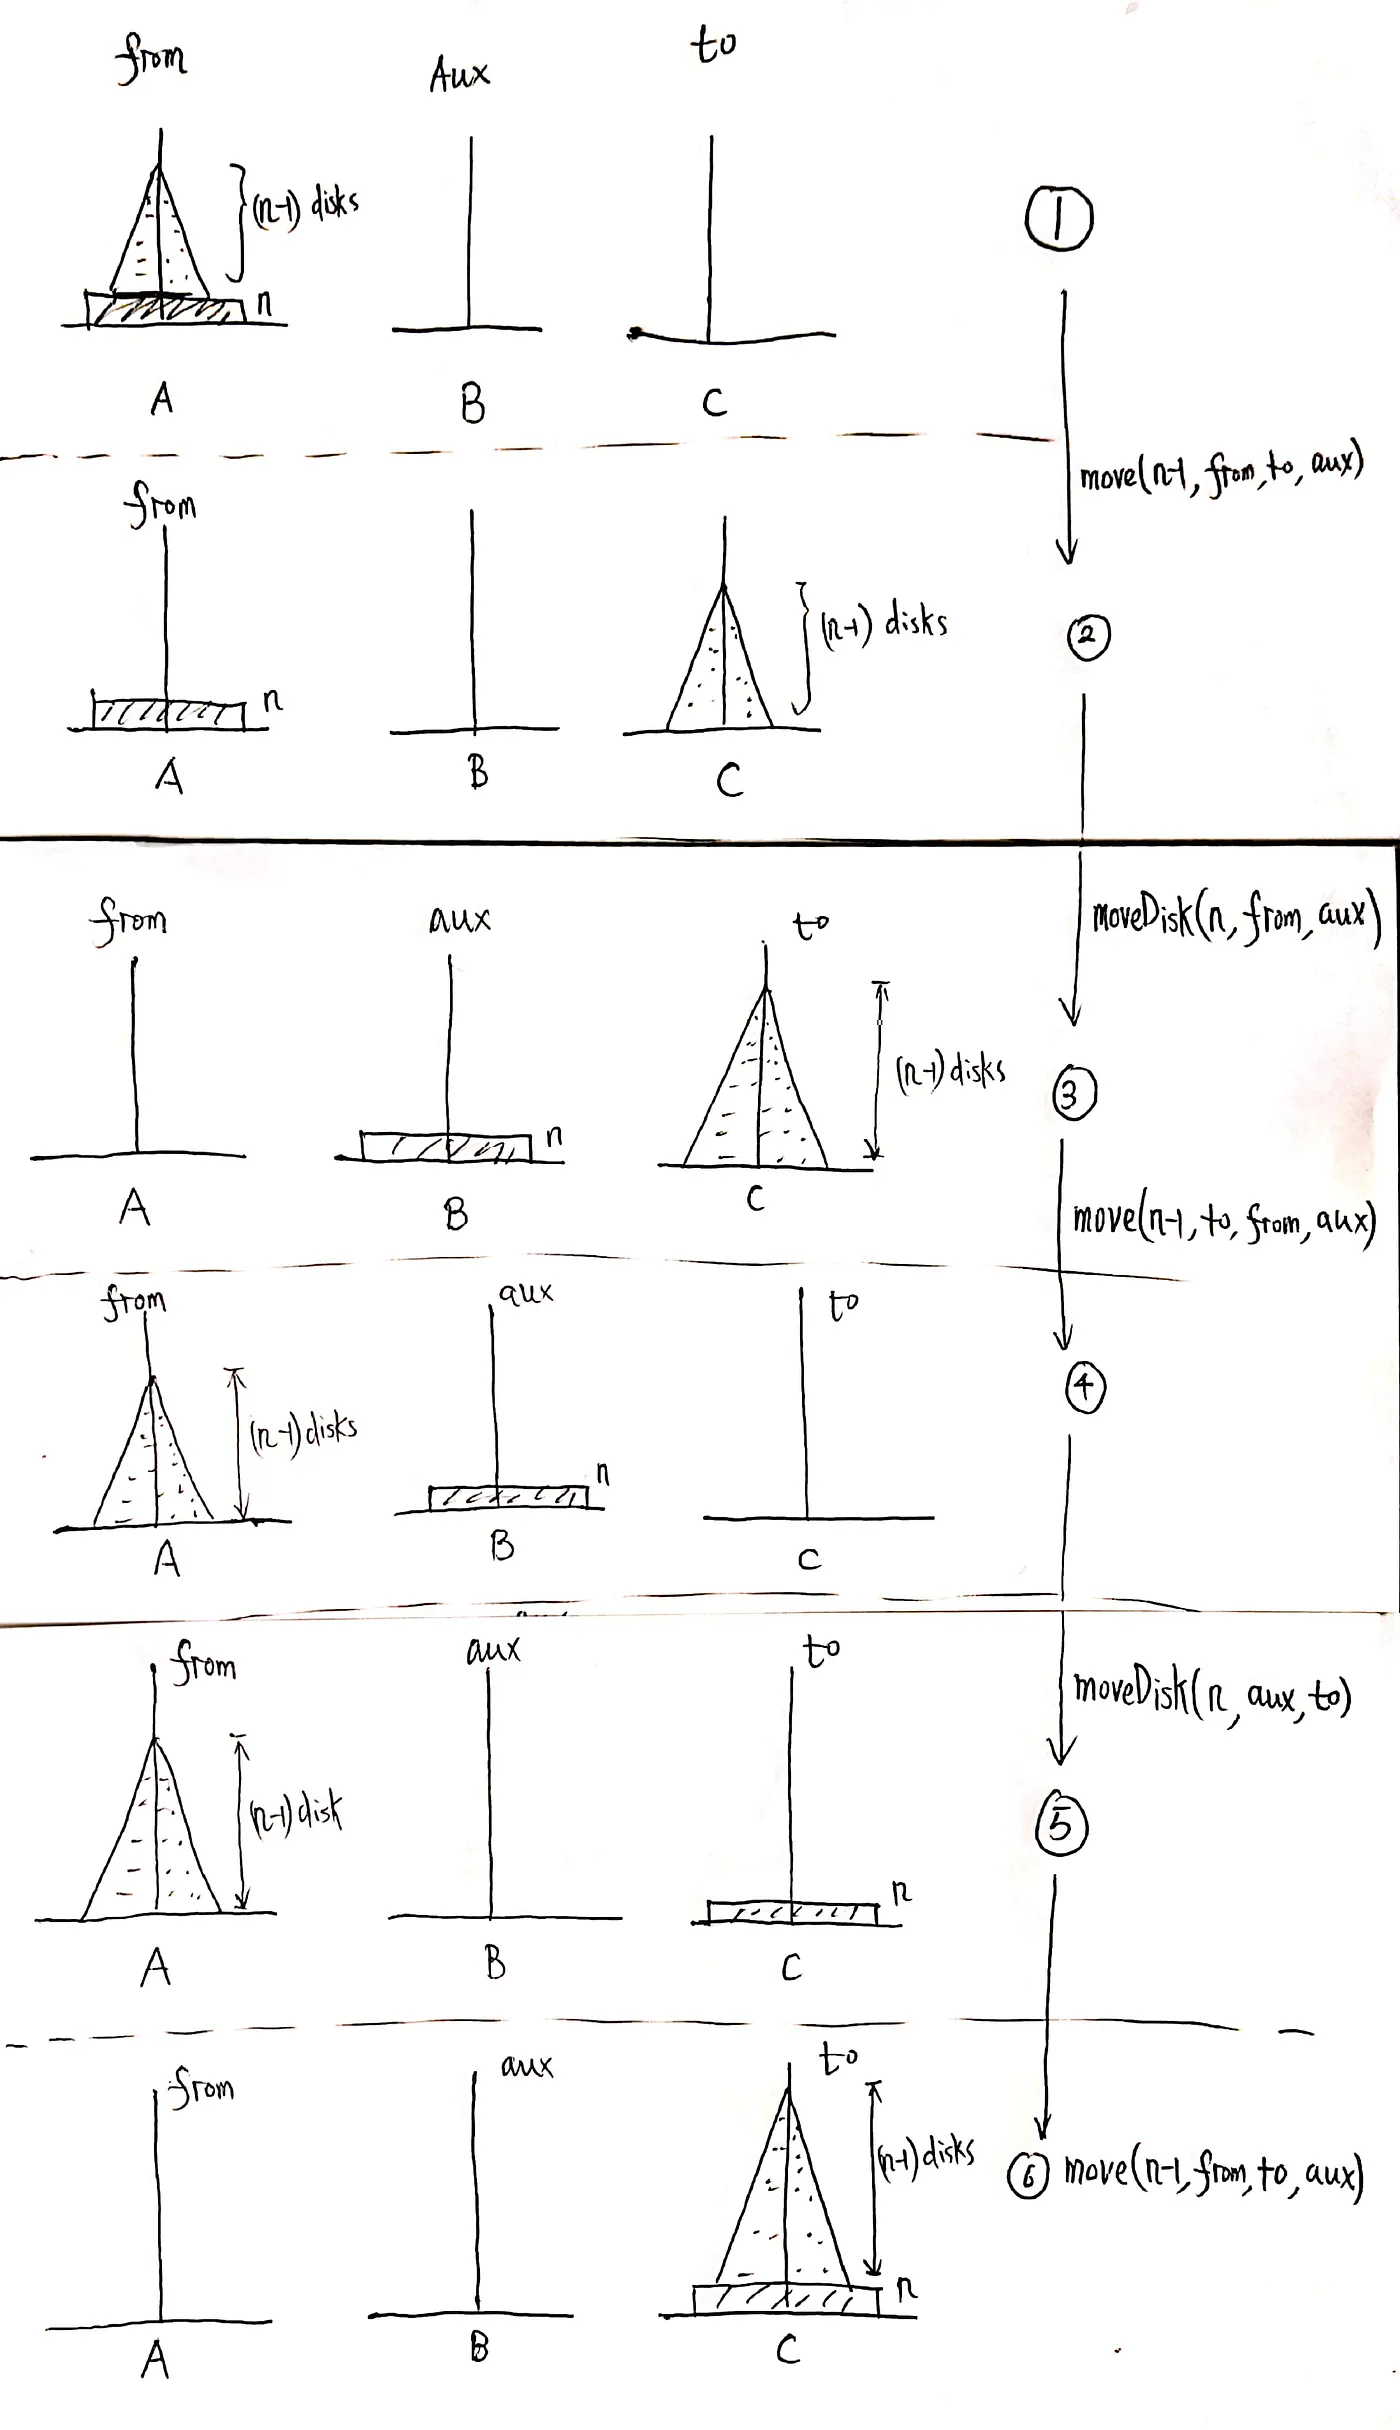 from Aux to
(n-1) disks
n
1
A B C
move(n-1, from, to, aux)
from
(n-1) disks
2
n
A B C
moveDisk(n, from, aux)
from aux to
(n-1) disks
3
n
A B C
move(n-1, to, from, aux)
from aux to
4
(n-1) disks
n
A B C
from aux to
moveDisk(n, aux, to)
(n-1) disk
5
n
A B C
from aux to
(n-1) disks
6 move(n-1, from, to, aux)
n
A B C